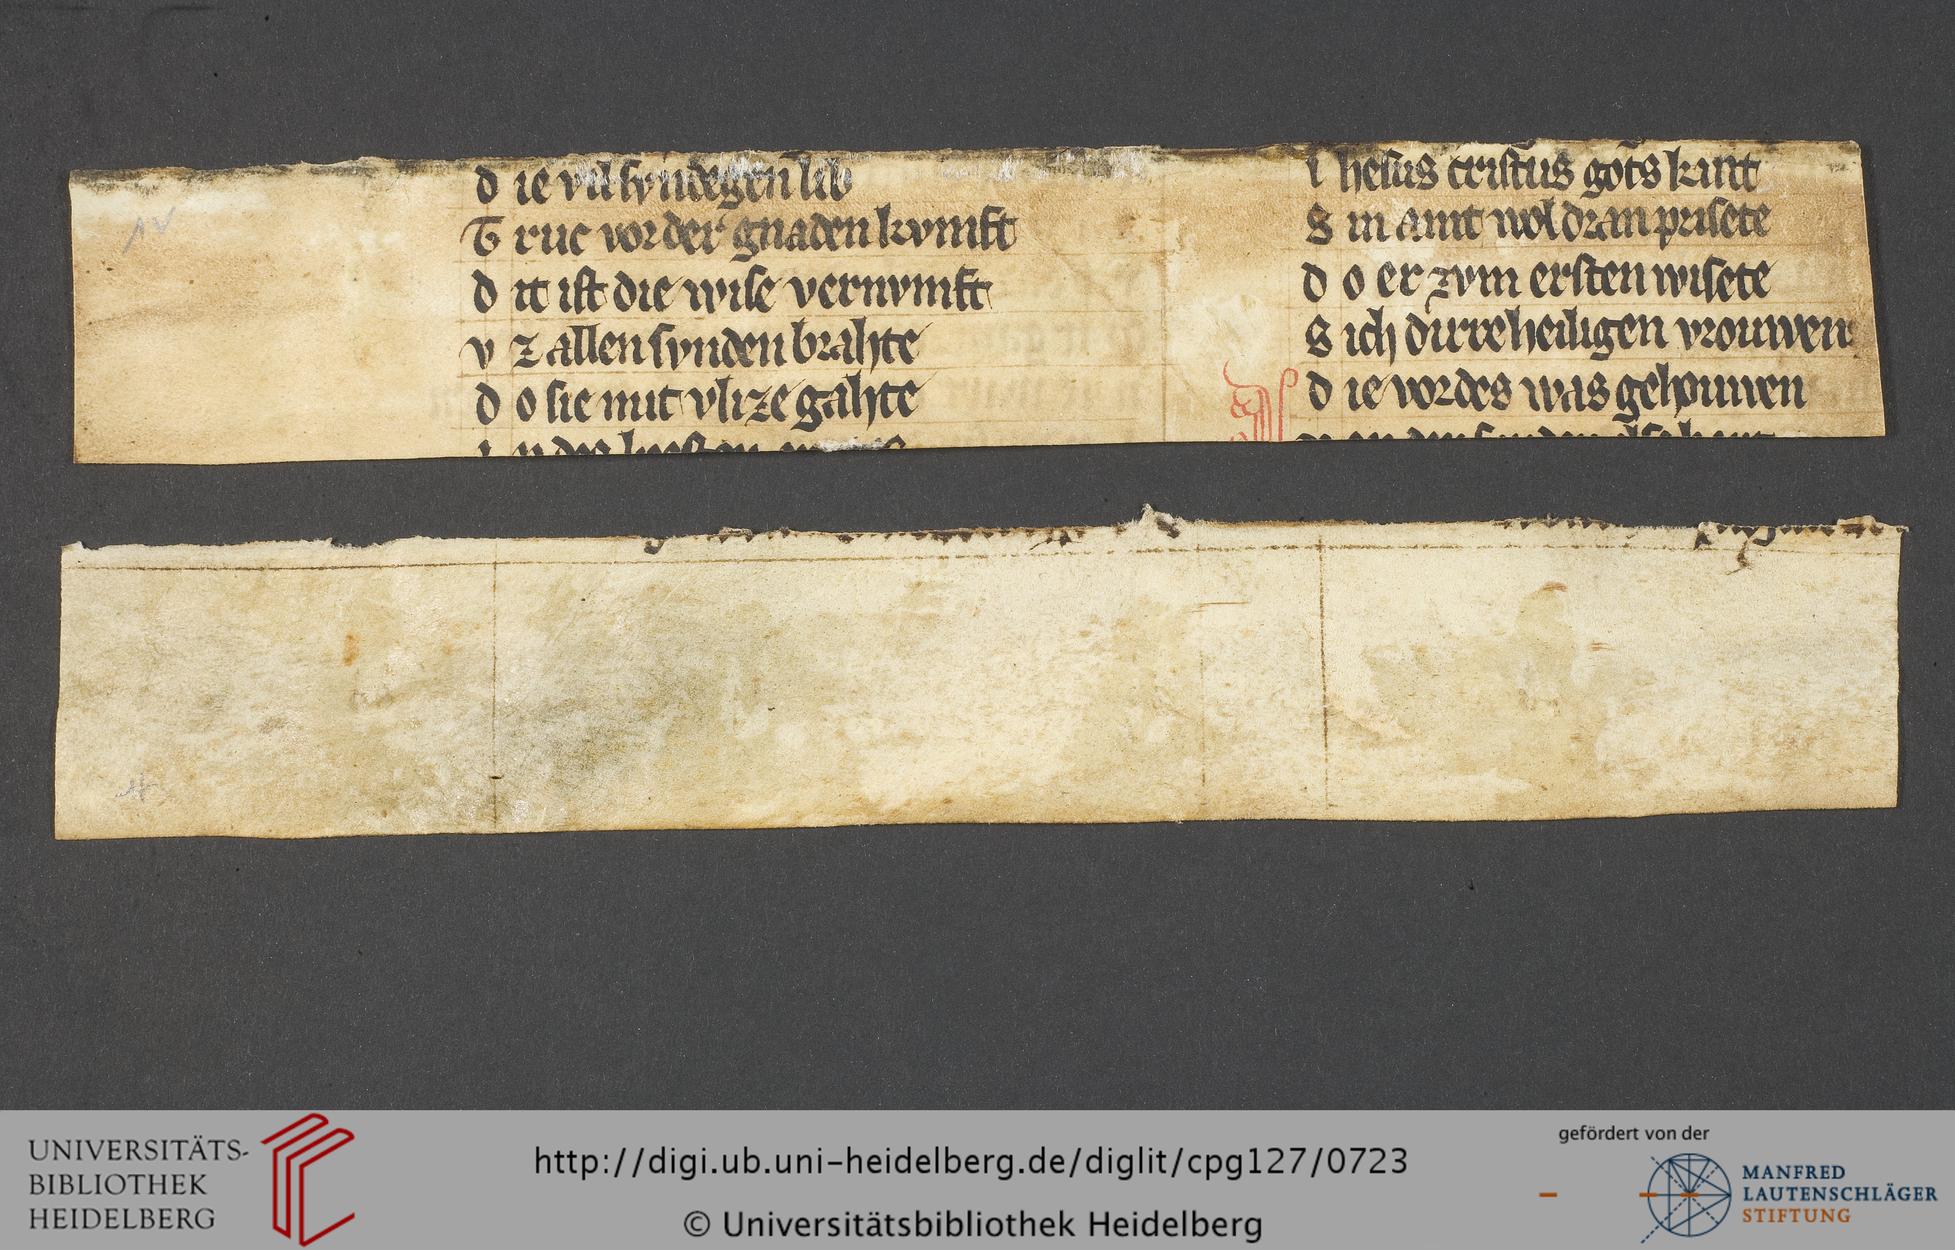 d ie vil syndegen lib
T ruc vor der gnaden kvmft
d it ist die wise vernvmft
v z allen synden brahte
d o sie mit vlize gahte
i hesus cristus gots kint
S in amt wol dran prisete
d o er zvm ersten wisete
S ich dirre heiligen vrouwen
d ie vor des was gehouwen
UNIVERSITÄTS-
BIBLIOTHEK
HEIDELBERG
http://digi.ub.uni-heidelberg.de/diglit/cpg127/0723
© Universitätsbibliothek Heidelberg
gefördert von der
MANFRED
LAUTENSCHLÄGER
STIFTUNG